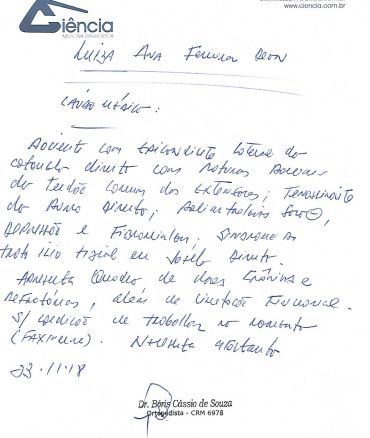 Ciência
MEDICINA DIAGNÓSTICA
www.ciencia.com.br
Luiza Ana Ferreira
Laudo Médico:
Paciente com Epicondilite lateral do
cotovelo direto com rotura
do tendão comum dos extensores; Tenossinovite
do Punho Direito;
e Fibromialgia; Síndrome
trato ílio tibial em Joelho Direito.
Apresenta Quadro de dores Crônicas e
refratárias, além de limitação Funcional.
S/ condição de trabalhar no momento
(Faxineira). Necessita
23.11.18
Dr. Bóris Cássio de Souza
Ortopedista - CRM 6978